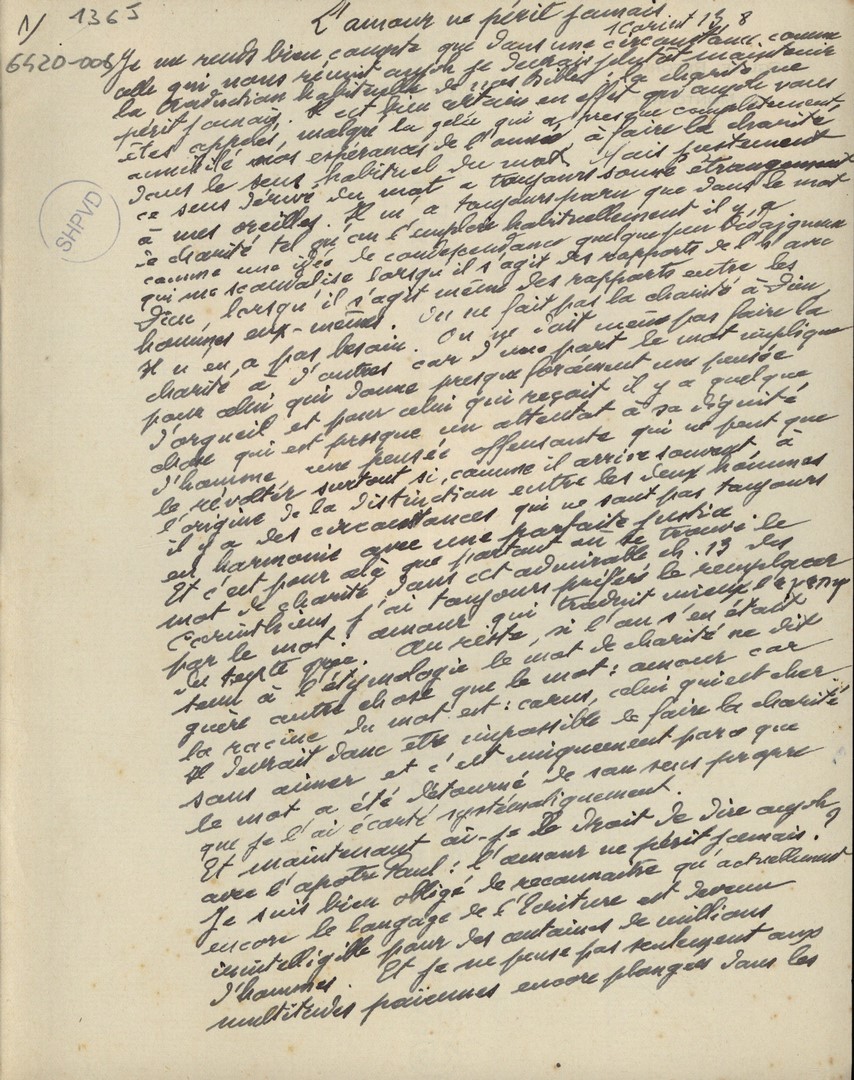 1/ 1365
6420-006
L'amour ne périt jamais
1 Corint 13, 8
SHPVD
Je me rends bien compte que dans une circonstance comme
celle qui nous réunit aujoh je devrais plutôt maintenir
la traduction habituelle de nos Bibles : la charité ne
périt jamais. Il est bien certain en effet qu'aujoh vous
êtes appelés, malgré la gelée qui a presque complètement
annihilé nos espérances de l'année, à faire la charité
dans le sens habituel du mot. Mais justement
ce sens dérivé du mot a toujours sonné étrangement
à mes oreilles. Il m'a toujours paru que dans le mot
de charité tel qu'on l'emploie habituellement il y a
comme une idée de condescendance quelque peu dédaigneuse
qui me scandalise lorsqu'il s'agit des rapports de l'h avec
Dieu, lorsqu'il s'agit même des rapports entre les
hommes eux-mêmes. On ne fait pas la charité à Dieu,
Il n'en a pas besoin. On ne doit même pas faire la
charité à d'autres car d'une part le mot implique
pour celui qui donne presque forcément une pensée
d'orgueil et pour celui qui reçoit il y a quelque
chose qui est presque un attentat à sa dignité
d'homme, une pensée offensante qui ne peut que
le révolter surtout si, comme il arrive souvent, à
l'origine de la distinction entre les deux hommes
il y a des circonstances qui ne sont pas toujours
en harmonie avec une parfaite justice.
Et c'est pour cela que partout où se trouve le
mot de charité dans cet admirable ch. 13 des
Corinthiens j'ai toujours préféré le remplacer
par le mot : amour qui traduit mieux l'
du texte grec. Au reste, si l'on s'en était
tenu à l'étymologie le mot de charité ne dit
guère autre chose que le mot : amour car
la racine du mot est : carus, celui qui est cher.
Il devrait donc être impossible de faire la charité
sans aimer et c'est uniquement parce que
le mot a été détourné de son sens propre
que je l'ai écarté systématiquement.
Et maintenant ai-je le droit de dire aujoh
avec l'apôtre Paul : l'amour ne périt jamais ?
Je suis bien obligé de reconnaître qu'actuellement
encore le langage de l'Ecriture est devenu
inintelligible pour des centaines de millions
d'hommes. Et je ne pense pas seulement aux
multitudes païennes encore plongées dans les